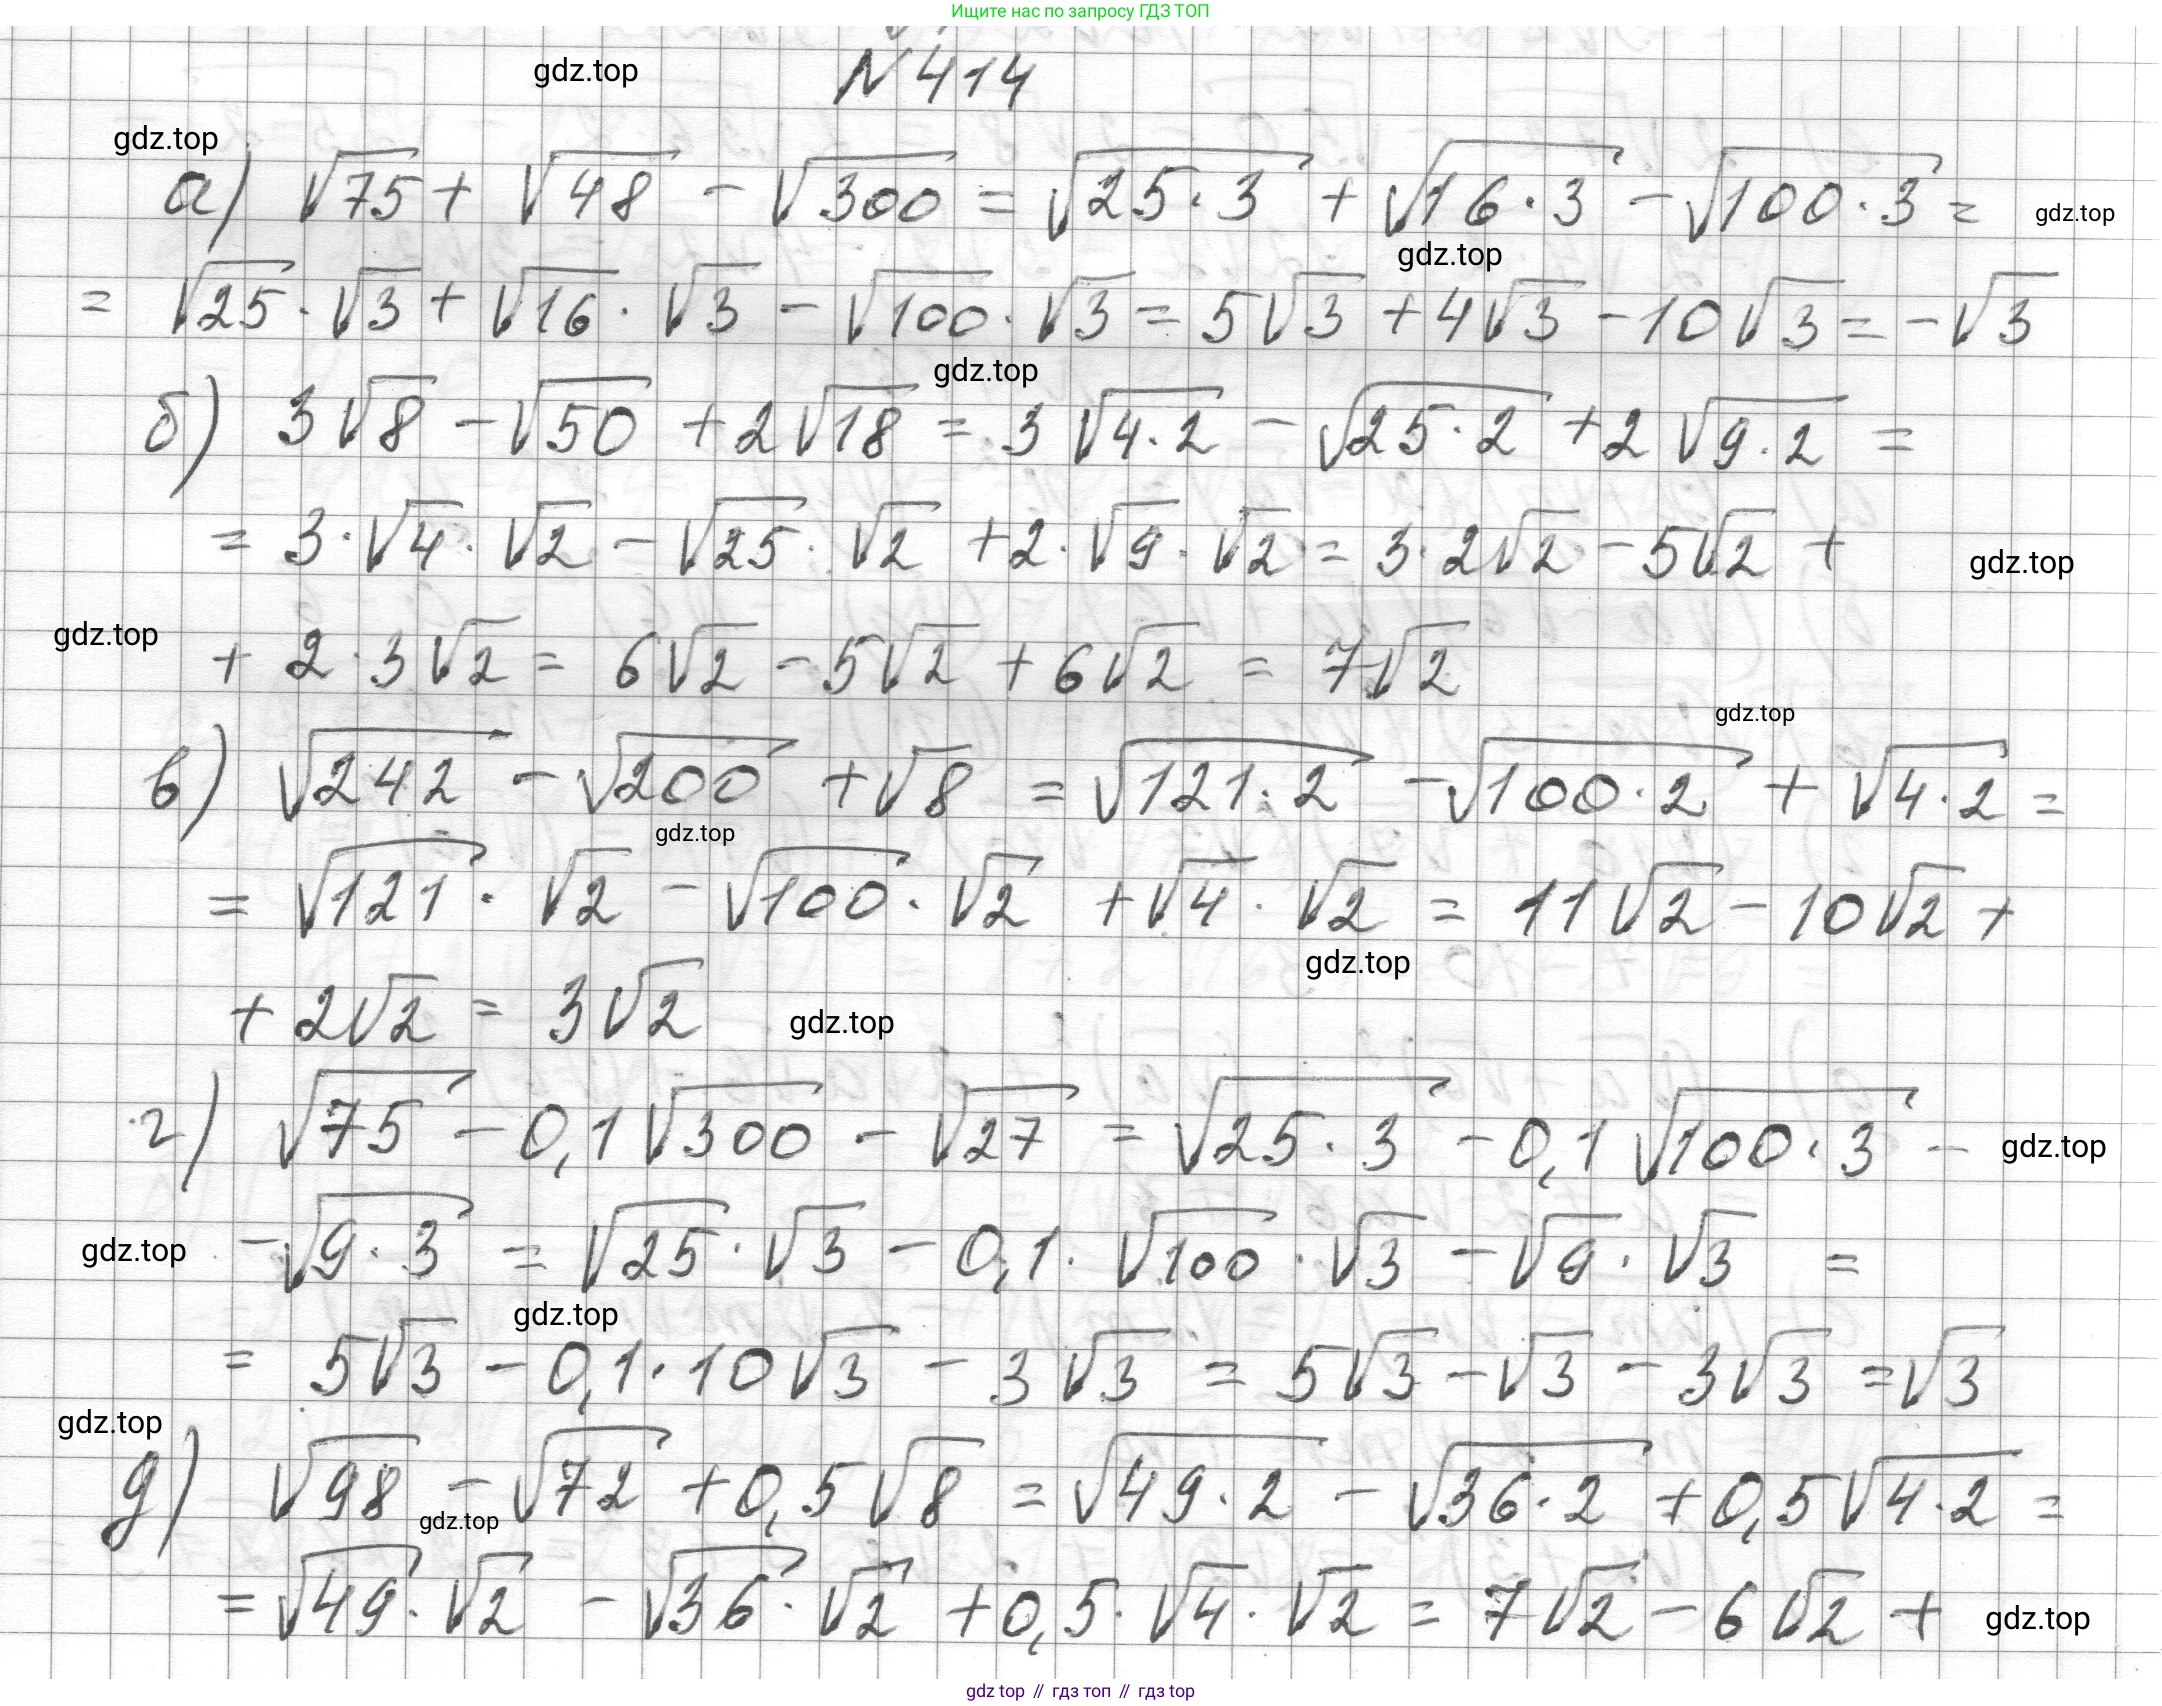 Ищите нас по запросу ГДЗ ТОП
gdz.top
№ 414
gdz.top
а) √75 + √48 - √300 = √25·3 + √16·3 - √100·3 =
gdz.top
gdz.top
= √25·√3 + √16·√3 - √100·√3 = 5√3 + 4√3 - 10√3 = -√3
gdz.top
б) 3√8 - √50 + 2√18 = 3√4·2 - √25·2 + 2√9·2 =
= 3·√4·√2 - √25·√2 + 2·√9·√2 = 3·2√2 - 5√2 +
gdz.top
gdz.top
+ 2·3√2 = 6√2 - 5√2 + 6√2 = 7√2
gdz.top
в) √242 - √200 + √8 = √121·2 - √100·2 + √4·2 =
gdz.top
= √121·√2 - √100·√2 + √4·√2 = 11√2 - 10√2 +
gdz.top
+ 2√2 = 3√2
gdz.top
г) √75 - 0,1√300 - √27 = √25·3 - 0,1√100·3 -
gdz.top
gdz.top
- √9·3 = √25·√3 - 0,1·√100·√3 - √9·√3 =
gdz.top
= 5√3 - 0,1·10√3 - 3√3 = 5√3 - √3 - 3√3 = √3
gdz.top
д) √98 - √72 + 0,5√8 = √49·2 - √36·2 + 0,5√4·2 =
gdz.top
= √49·√2 - √36·√2 + 0,5·√4·√2 = 7√2 - 6√2 +
gdz.top
gdz top // гдз топ // гдз top